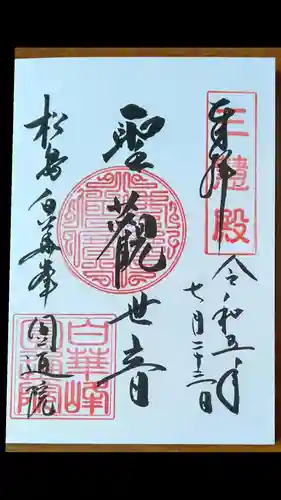 奉拝
三慧殿
令和五年
七月二十二日
聖觀世音
松島白華峰
圓通院
白華峰
圓通院